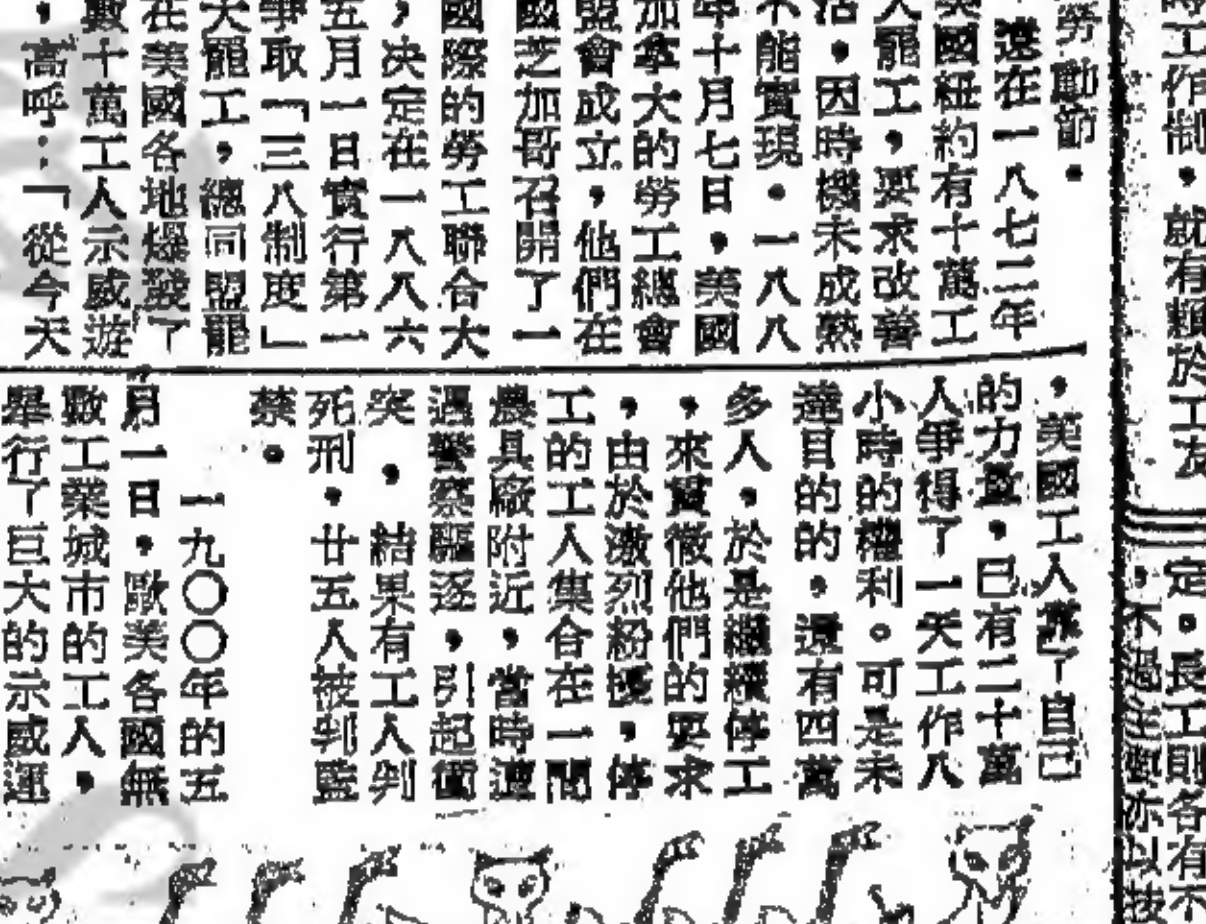 時工作制，就有賴於工友
勞動節。
遠在一八七二年
美國紐約有十萬工
人罷工，要求改善
活，因時機未成熟
不能實現。一八八
年十月七日，美國
加拿大的勞工總會
盟會成立，他們在
國芝加哥召開了一
國際的勞工聯合大
，決定在一八八六
五月一日實行第一
爭取「三八制度」
大罷工，總同盟罷
在美國各地爆發了
數十萬工人示威遊
，高呼：「從今天
，美國工人靠了自己
的力量，已有二十萬
人爭得了一天工作八
小時的權利。可是未
達目的的，還有四萬
多人，於是繼續停工
，來貫徹他們的要求
，由於激烈紛擾，停
工的工人集合在一間
農具廠附近，當時遭
遇警察驅逐，引起衝
突，結果有工人判
死刑，廿五人被判監
禁。
一九〇〇年的五
月一日，歐美各國無
數工業城市的工人，
舉行了巨大的示威運
定。長工則各有不
，不過在類亦以技